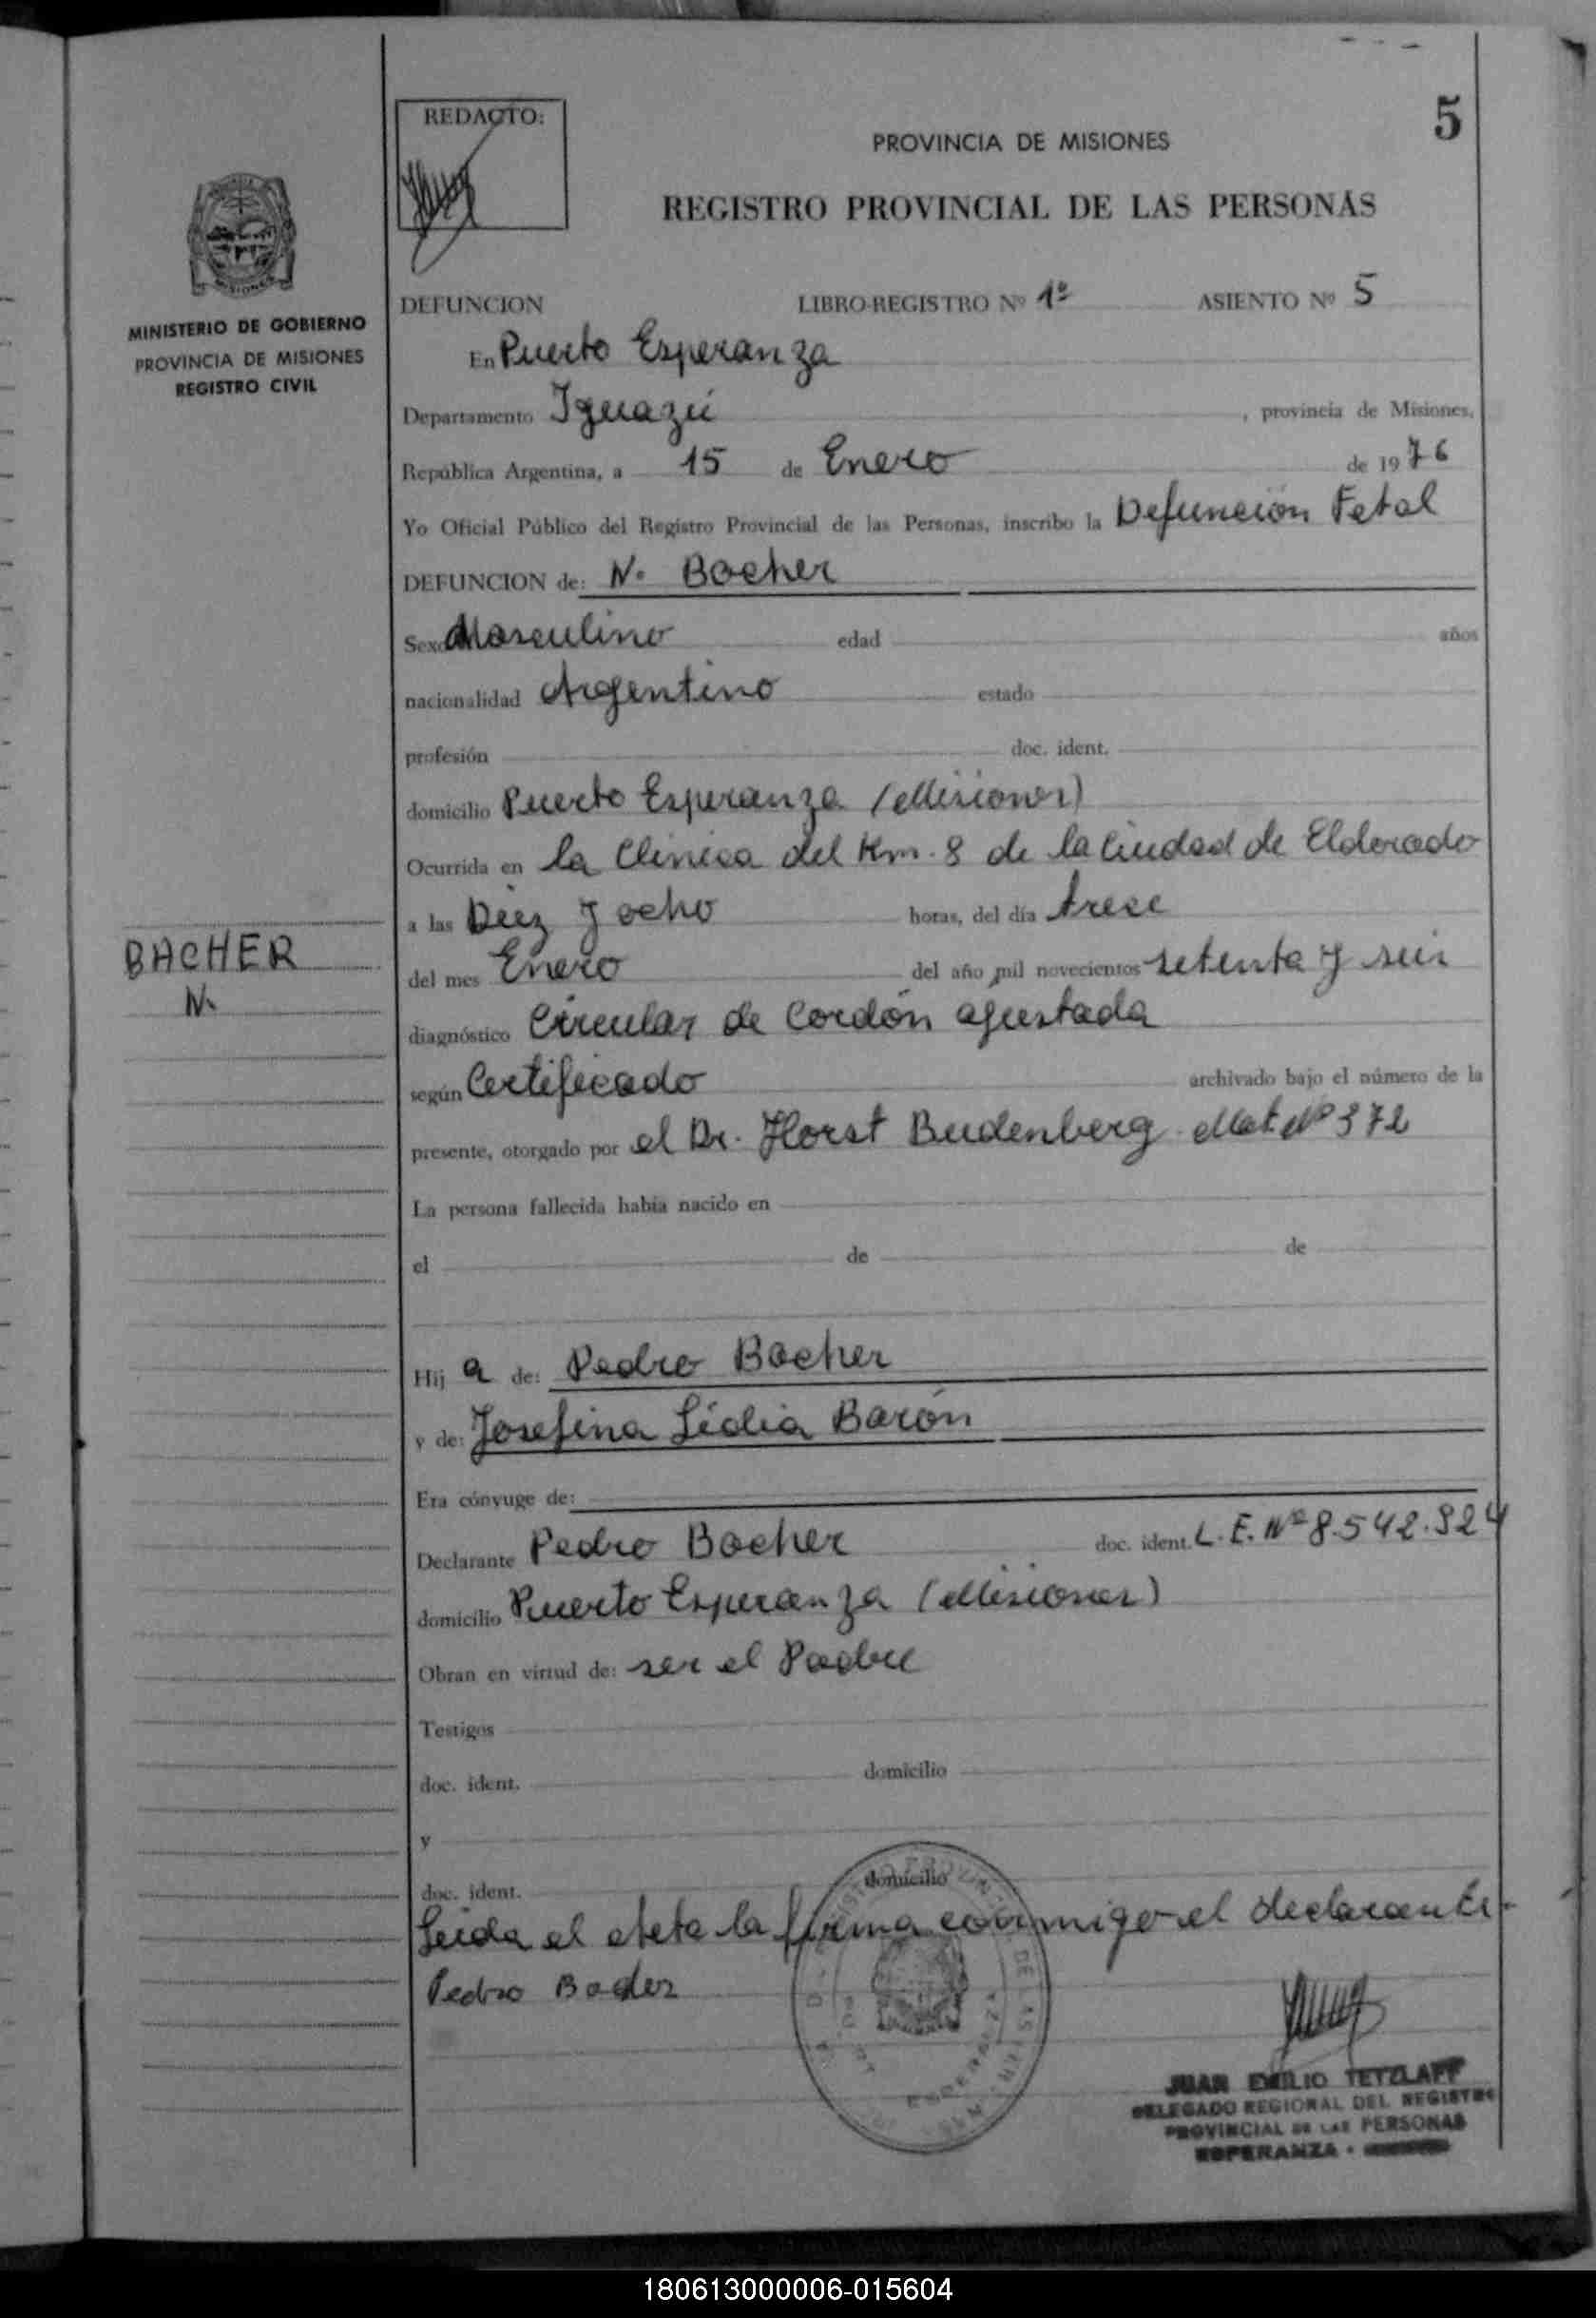 5
REDACTO:
PROVINCIA DE MISIONES
REGISTRO PROVINCIAL DE LAS PERSONAS
MISIONES
MINISTERIO DE GOBIERNO
PROVINCIA DE MISIONES
REGISTRO CIVIL
DEFUNCION LIBRO-REGISTRO Nº 1º ASIENTO Nº 5
En Puerto Esperanza
Departamento Iguazú , provincia de Misiones,
República Argentina, a 15 de Enero de 1976
Yo Oficial Público del Registro Provincial de las Personas, inscribo la Defunción Fetal
DEFUNCION de: N. Bacher
Sexo Masculino edad años
nacionalidad Argentino estado
profesión doc. ident.
domicilio Puerto Esperanza (Misiones)
Ocurrida en la Clinica del Km. 8 de la Ciudad de Eldorado
a las Diez y ocho horas, del día trece
BACHER
N.
del mes Enero del año mil novecientos setenta y seis
diagnóstico Circular de Cordón ajustada
según Certificado archivado bajo el número de la
presente, otorgado por el Dr. Horst Budenberg Mat. Nº 372
La persona fallecida había nacido en
el de de
Hij a de: Pedro Bacher
y de: Josefina Lidia Barón
Era cónyuge de:
Declarante Pedro Bacher doc. ident. L.E. Nº 8.542.924
domicilio Puerto Esperanza (Misiones)
Obran en virtud de: ser el Padre
Testigos
doc. ident. domicilio
y
doc. ident. domicilio
Leida el Acta la firma conmigo el declarante.-
Pedro Bacher
JUAN EMILIO TETZLAFF
DELEGADO REGIONAL DEL REGISTRO
PROVINCIAL DE LAS PERSONAS
ESPERANZA -
180613000006-015604